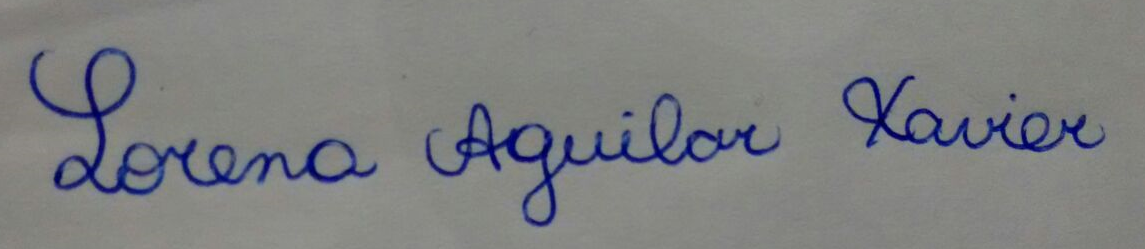 Lorena Aguilar Xavier